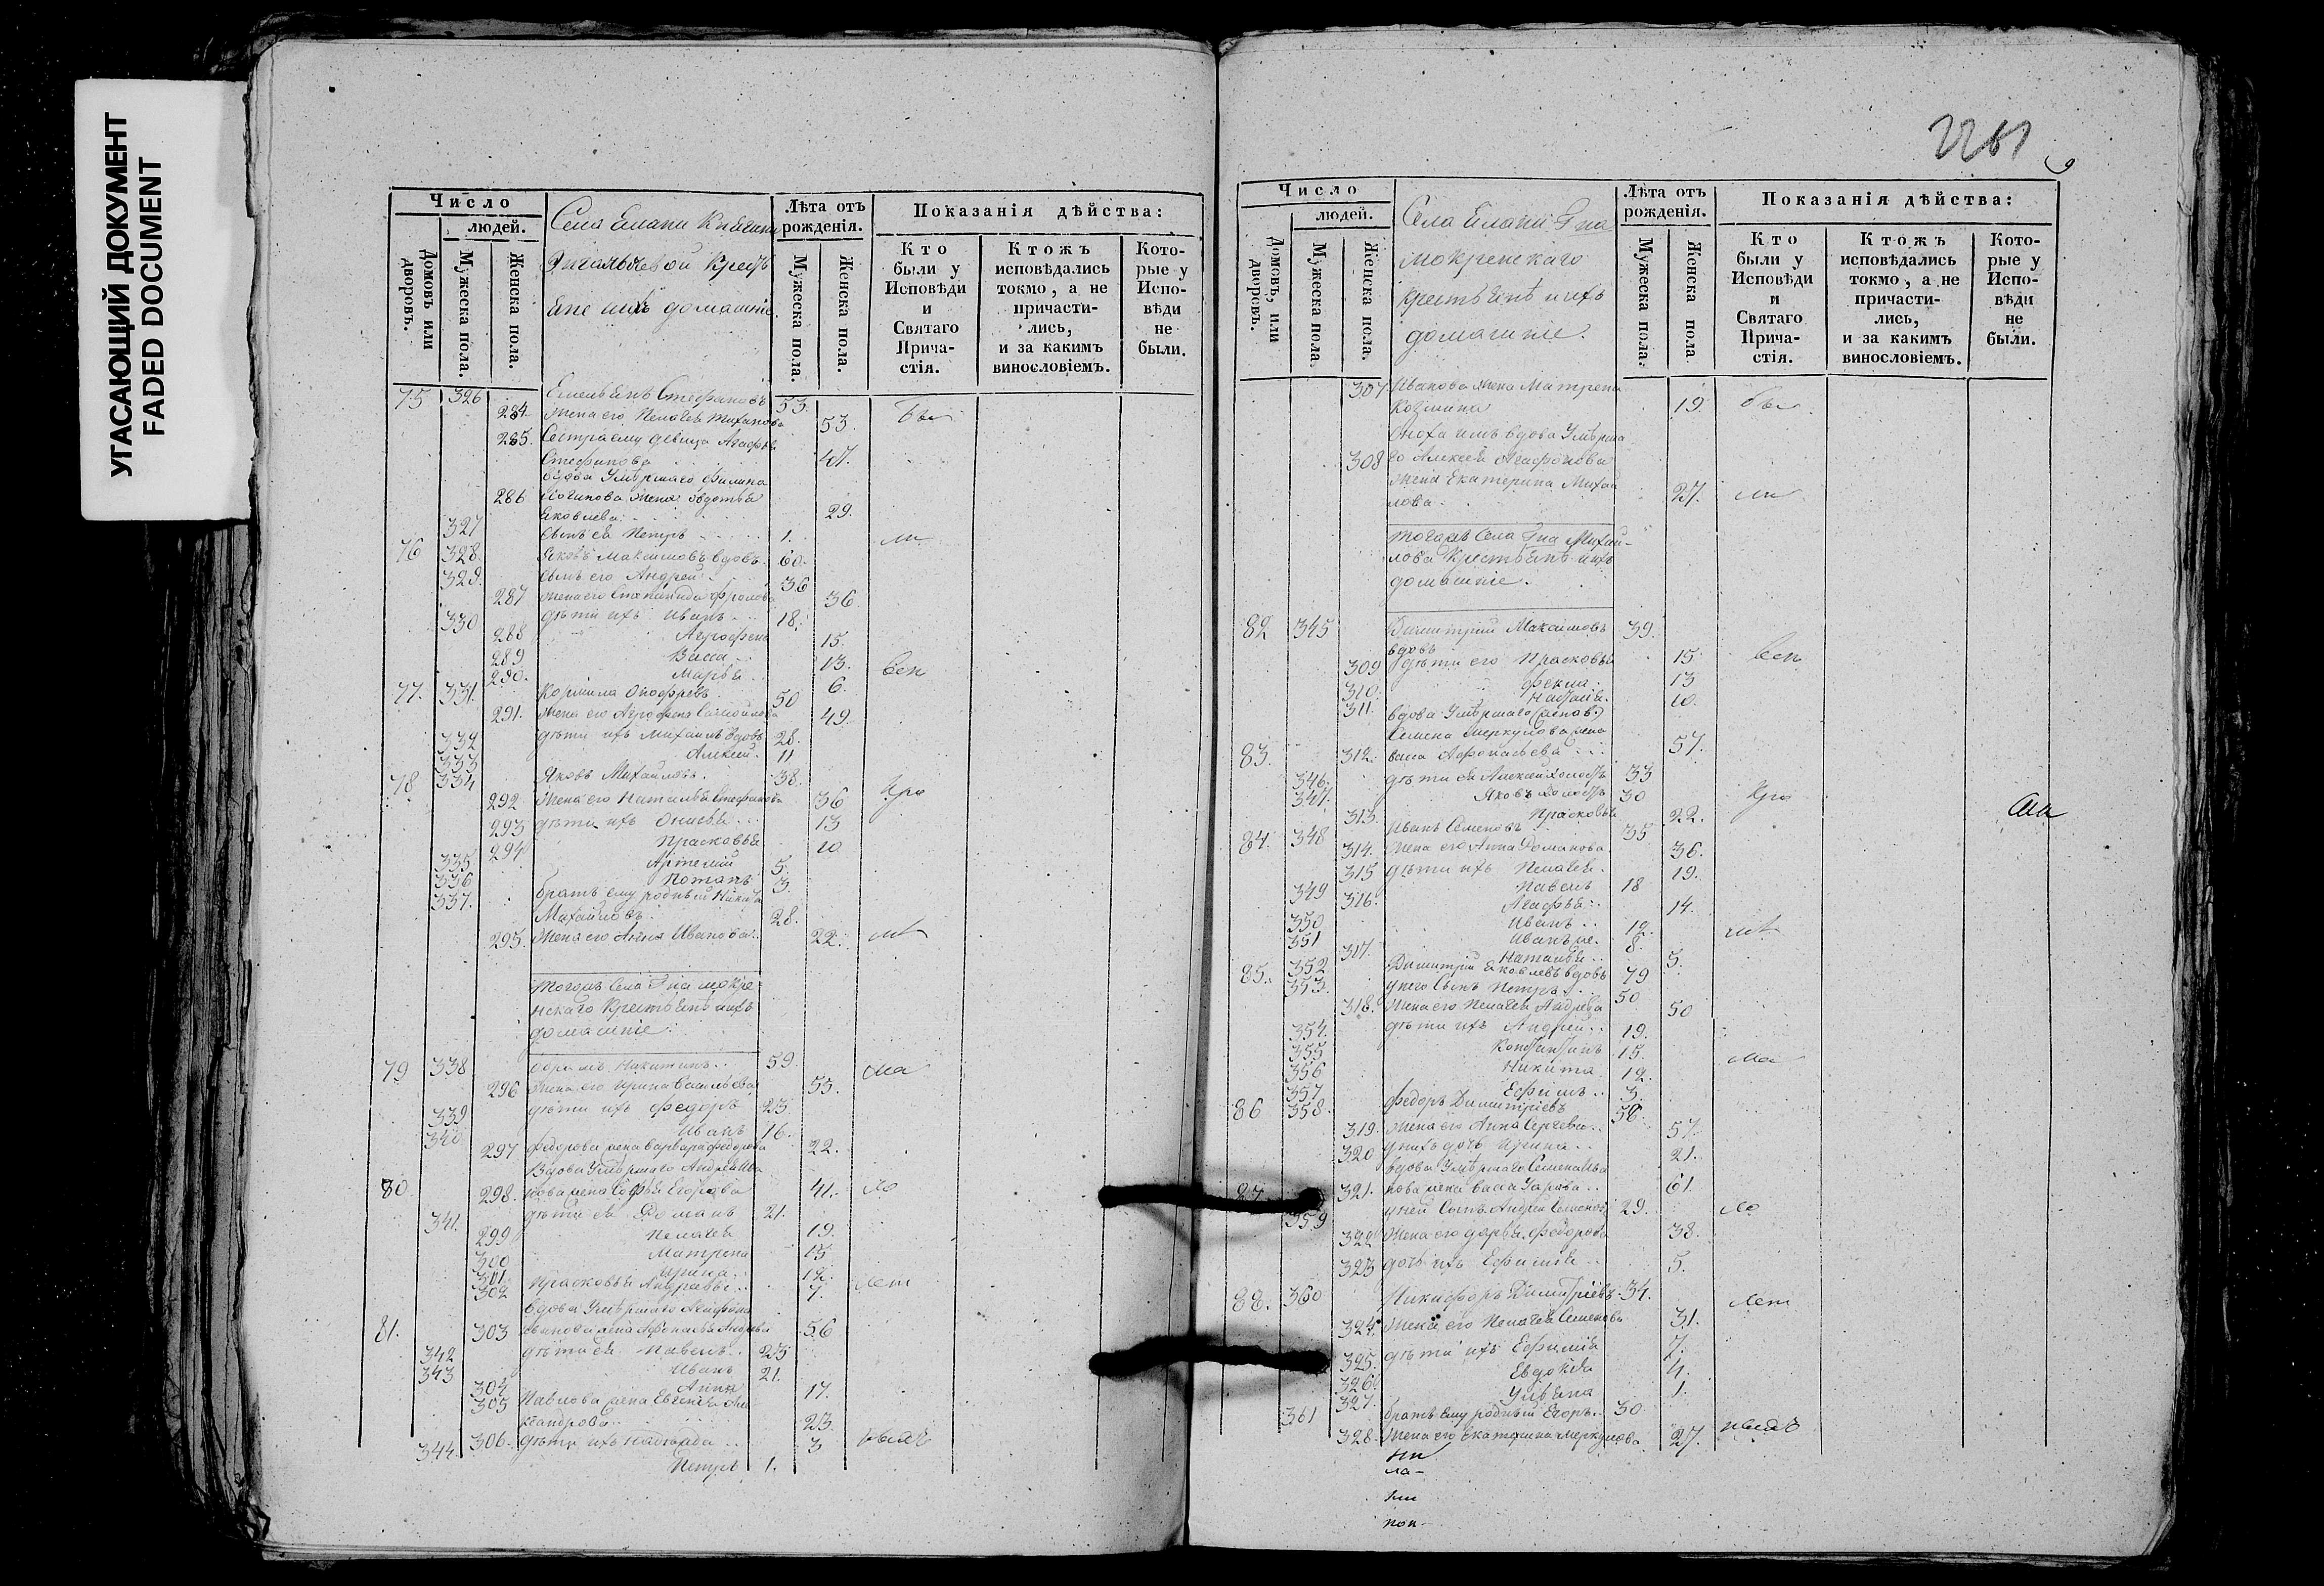 УГАСАЮЩИЙ ДОКУМЕНТ
FADED DOCUMENT
Число
людей.
Домовъ или дворовъ.
Мужеска пола.
Женска пола.
Села Елани Княгини
крестъ
яне ихъ домашніе.
Лѣта отъ рожденія.
Мужеска пола.
Женска пола.
Показанія дѣйства:
Кто были у Исповѣди и Святаго Прича-стія.
Ктожъ исповѣдались токмо, а не причасти-лись, и за какимъ винословіемъ.
Кото-рые у Испо-вѣди не были.
75 326 Емельянъ Стефановъ 53.
284. Жена его Пелагея 53. Бы
285. Сестра ему девица Агафья
Стефанова 47.
вдова Умѣршаго Филипа
286 жена Авдотья
Яковлева 29.
327 Сынъ ея Петръ 1. ли
76 328 Яковъ Максимовъ вдовъ 60.
329. Сынъ его Андрей 36
287 Жена его Степанида Фролова 36
330 дѣти ихъ Иванъ 18.
288 Агрофена 15.
289 Васса 13. всѣ
290. Марья 6.
77. 331. Корнила Онофревъ 50
291. Жена его Агрофена Самойлова 49.
332 дѣти ихъ Михаилъ вдовъ 28.
333 Алексей 11
78 334 Яковъ Михайловъ. 38.
292 Жена его Наталья Стефанова 36 Кро
293 дѣти ихъ Онисья 13
294 Прасковья 10
335 Артемій 5.
336 Потапъ 3.
337. братъ ему родный Никита
Михайловъ 28.
295. Жена его Анна Иванова 22.
Тогожъ Села Гна Мокре
нскаго Крестьяне ихъ
домашніе
79 338 Никитинъ 59. ма
296 Жена его Ирина Васильева 53.
339 дѣти ихъ Федоръ 23.
340 Иванъ 16.
297 Федорова жена Варвара Федорова 22.
Вдова Умѣршаго Андрея Ива
80 298. нова жена Софья Егорова 41. ло
341. дѣти ея Романъ 21.
299 Пелагея 19.
300 Матрена 15
301 Ирина 12.
302 Прасковья 7. лет
вдова Умѣршаго Агафона
81. 303 Иванова жена Афонасья 56
342 дѣти ея Павелъ 23
343 Иванъ 21.
304 Анна 17.
305 Павлова жена Евгенья Але
ксандрова 23.
306. дѣти ихъ Надежда 3
344. Петръ 1.
9
Число
людей.
Домовъ, или дворовъ.
Мужеска пола
Женска пола.
Села Елани Гна
Мокренскаго
крестьянѣ ихъ
домашніе.
Лѣта отъ рожденія.
Мужеска пола.
Женска пола
Показанія дѣйства:
Кто были у Исповѣди и Святаго Прича-стія.
Ктожъ исповѣдались токмо, а не причасти-лись, и за какимъ винословіемъ.
Кото-рые у Испо-вѣди не были.
307 Иванова жена Матрена
Козмина 19. бы
Сноха имъ вдова Умѣрша
308 го Алексея Агафонова
жена Екатерина Михай
лова 27. ли
Тогожъ Села Гна Михай-
лова Крестьянѣ ихъ
домашніе.
82 345 Димитрій Максимовъ 39.
вдовъ
309 дѣти его Прасковья 15 всѣ
310. Фекла 13
311. Наталія 10.
вдова Умѣршаго
Семена Меркулова жена
83. 312. Васа Афонасьева 57.
346. дѣти ея Алексей холостъ 33
347. Яковъ холостъ 30 Кро
313. Прасковья 22.
84. 348 Иванъ Семеновъ 35
314. Жена его Анна Романова 36.
315 дѣти ихъ Пелагея 19.
349 Павелъ 18
316. Агафья 14.
350 Иванъ 12.
351 Иванъ 8.
317. Наталья 5.
85. 352 Димитрій Яковлевъ вдовъ 79
353. у него Сынъ Петръ 50
318. Жена его Пелагея Андрева 50
354. дѣти ихъ Андрей 19.
355 Константинъ 15.
356 Никита 12. ма
357 Ефимъ 3.
86 358. Федоръ Димитріевъ 56
319. Жена его Анна Сергева 57.
320 у нихъ дочь Ирина 21.
вдова Умѣршаго Семена Ива
87. 321. нова жена Васа 61.
359 у ней Сынъ Андрей Семеновъ 29. ло
322 Жена его Дарья Федорова 38.
323 дочь ихъ Ефимія 5.
88. 360 Никифоръ Димитріевъ 34. лет
324. Жена его Пелагея Семенова 31.
325. дѣти ихъ Ефимія 7.
326. Евдокія 4.
327. Ульяна 1.
361 братъ ему родный Егоръ 30
328. Жена его Екатерина Меркулова 27.